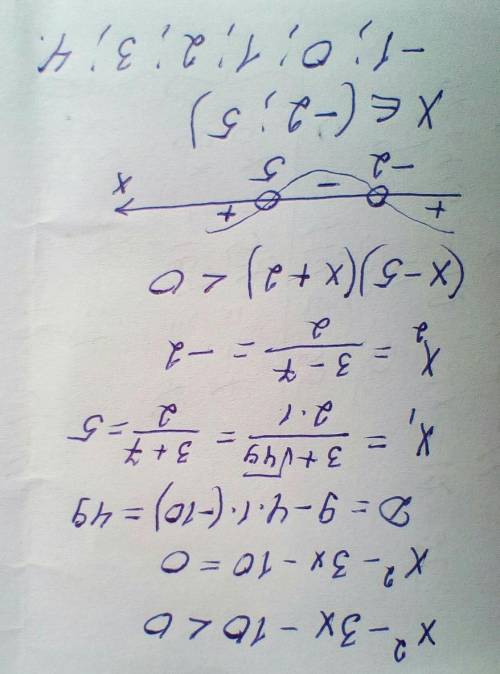 x² - 3x - 10 < 0
x² - 3x - 10 = 0
D = 9 - 4·1·(-10) = 49
x₁ = (3 + √49)/(2·1) = (3 + 7)/2 = 5
x₂ = (3 - 7)/2 = -2
(x - 5)(x + 2) < 0
+ - + x
-2 5
x ∈ (-2; 5)
-1; 0; 1; 2; 3; 4.